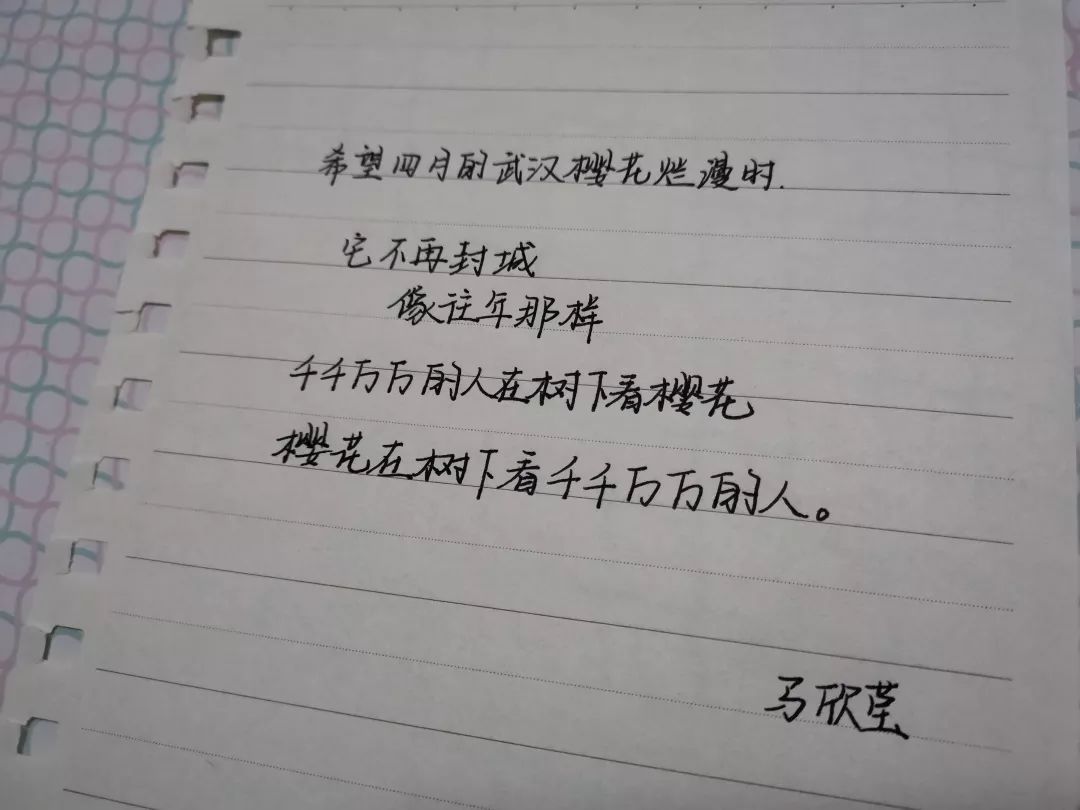 希望四月的武汉樱花烂漫时.
它不再封城
像往年那样
千千万万的人在树下看樱花
樱花在树下看千千万万的人。
马欣莹